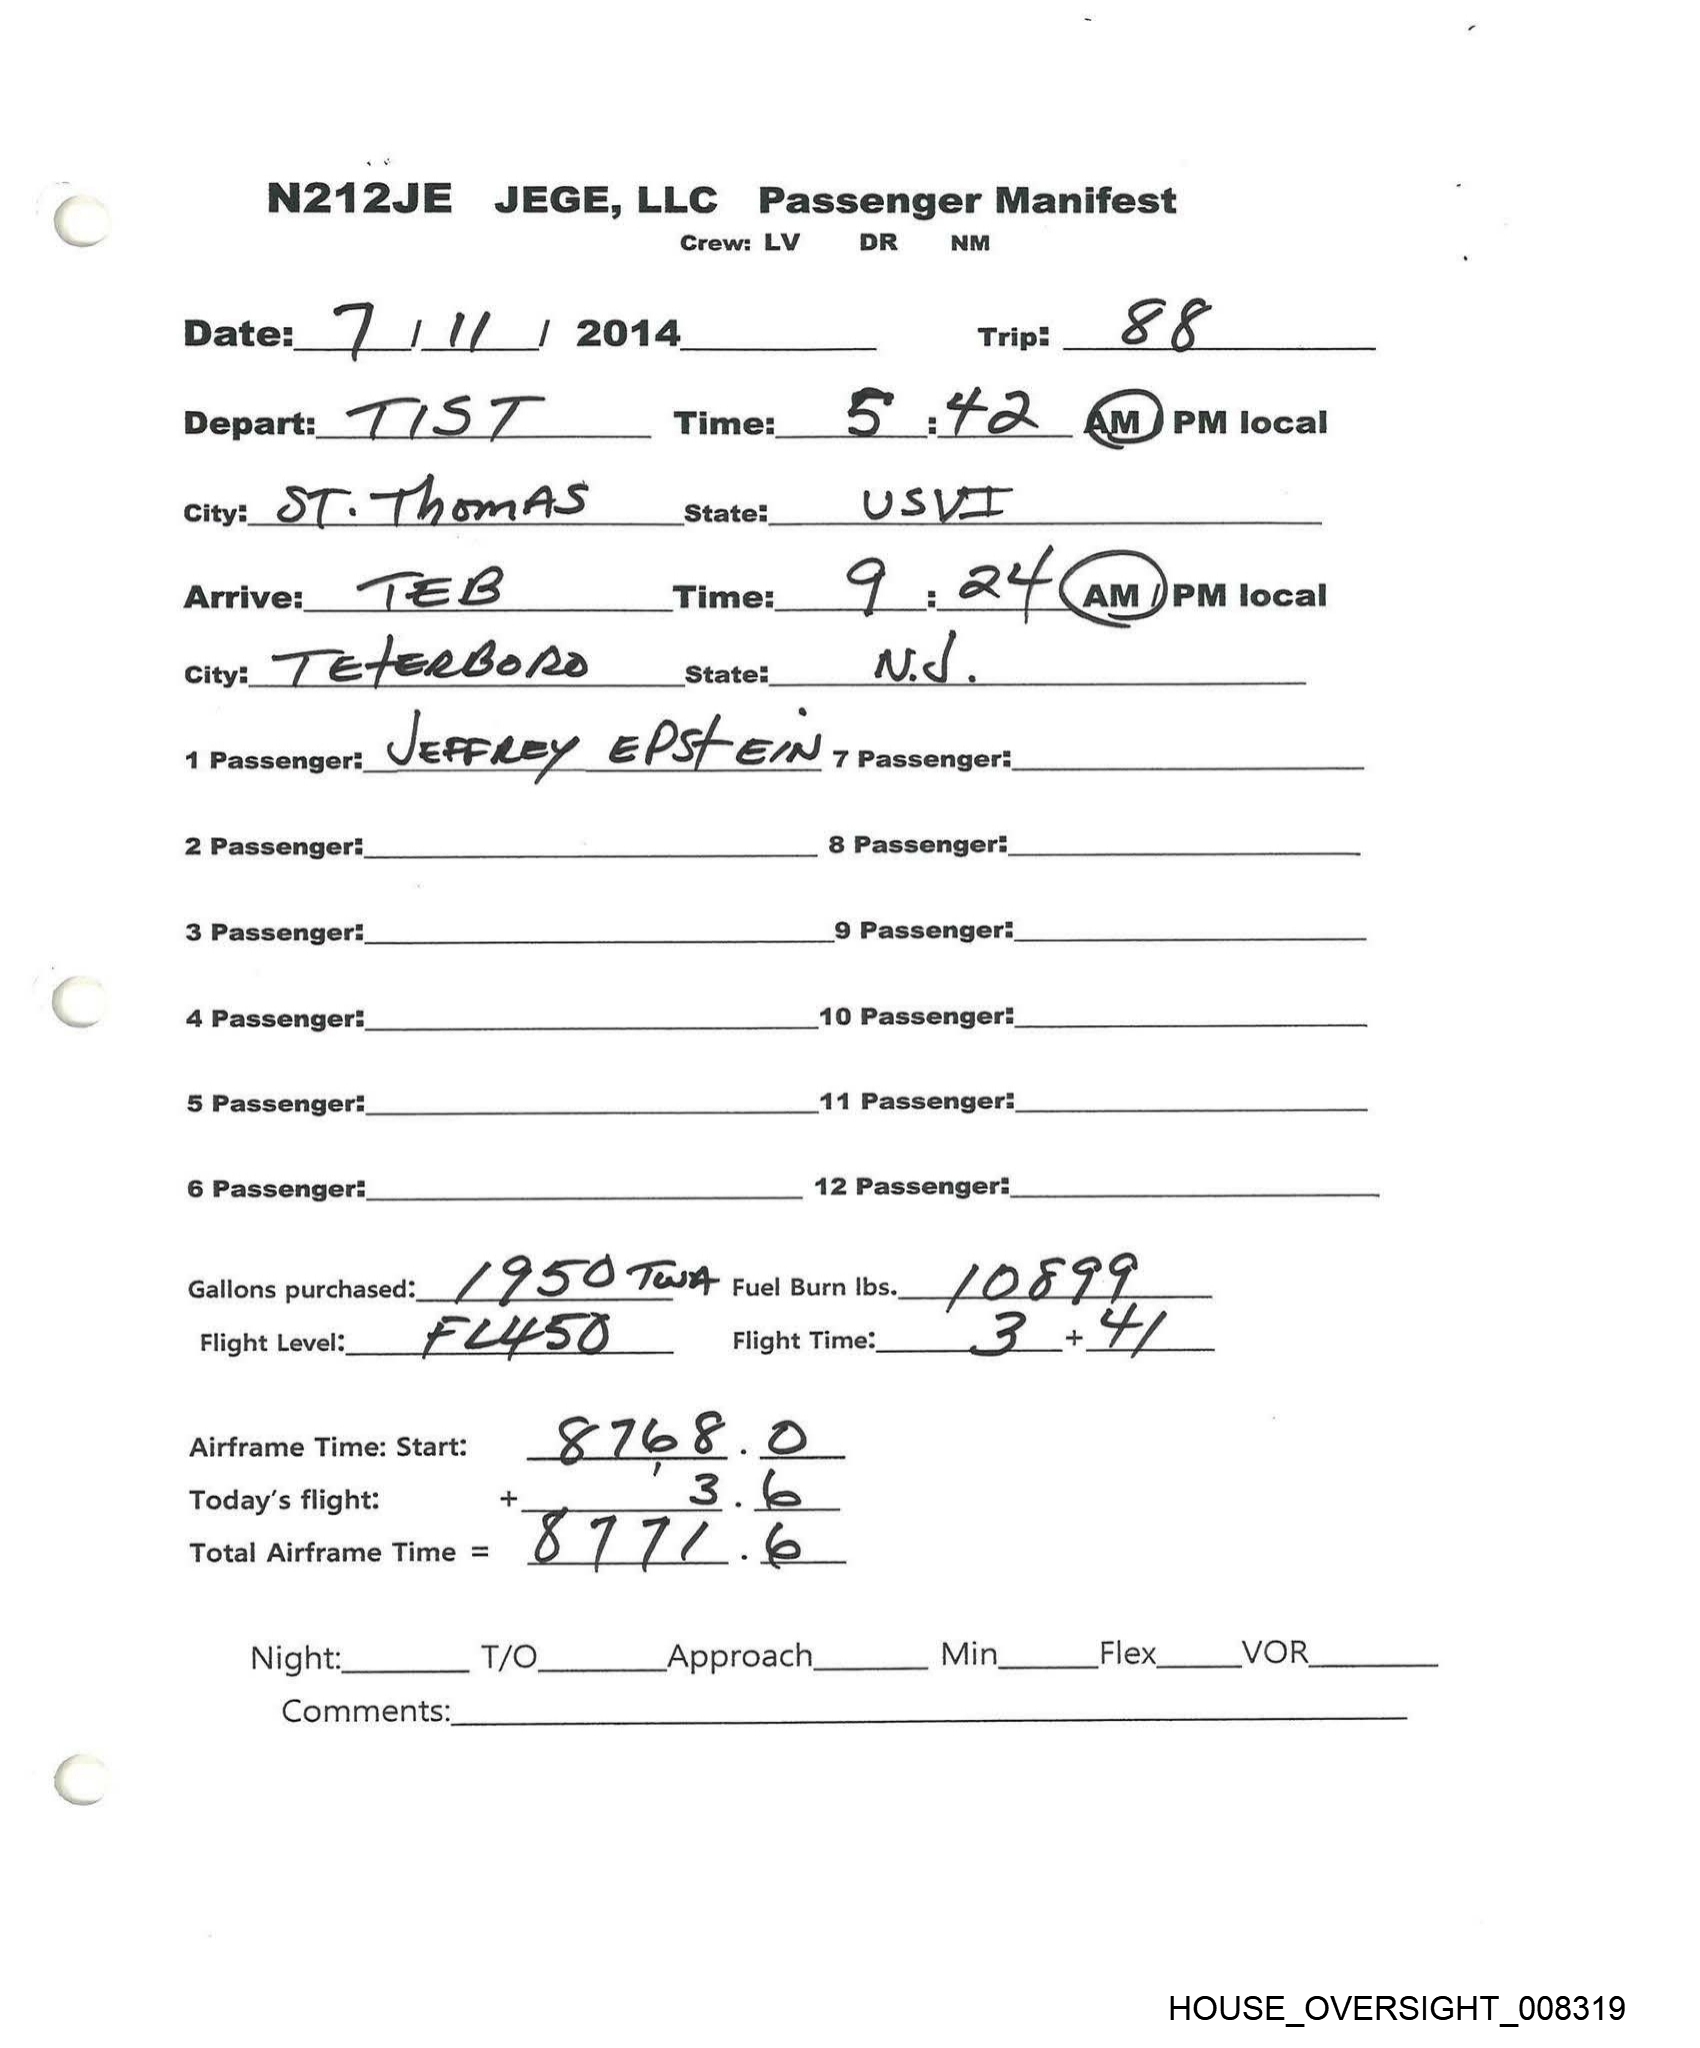 N212JE JEGE, LLC Passenger Manifest
Crew: LV DR NM
Date: 7 / 11 / 2014 Trip: 88
Depart: TIST Time: 5 : 42 AM / PM local
City: ST. ThomAS State: USVI
Arrive: TEB Time: 9 : 24 AM / PM local
City: TETERBORO State: N.J.
1 Passenger: JEFFREY EPSTEIN 7 Passenger:
2 Passenger: 8 Passenger:
3 Passenger: 9 Passenger:
4 Passenger: 10 Passenger:
5 Passenger: 11 Passenger:
6 Passenger: 12 Passenger:
Gallons purchased: 1950 TWA Fuel Burn lbs. 10899
Flight Level: FL450 Flight Time: 3 + 41
Airframe Time: Start: 8768.0
Today's flight: + 3.6
Total Airframe Time = 8771.6
Night: T/O Approach Min Flex VOR
Comments:
HOUSE_OVERSIGHT_008319